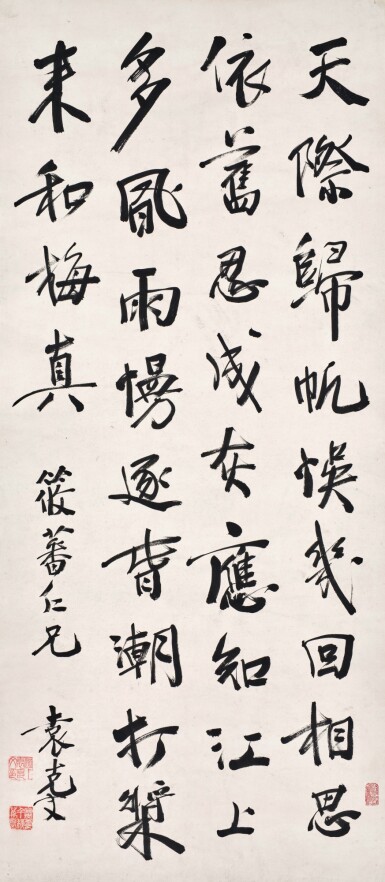 天際歸帆悞幾回相思
依舊忍成灰應知江上
多風雨慢逐胥潮打槳
来和梅真
筱蕃仁兄 袁克文